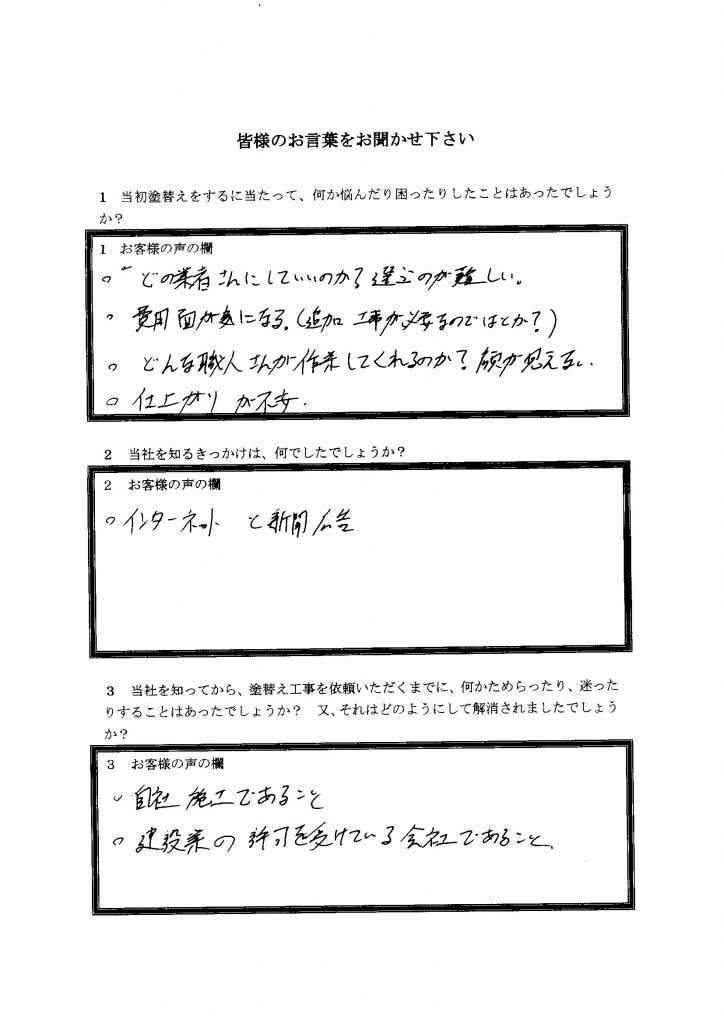 皆様のお言葉をお聞かせ下さい
1 当初塗替えをするに当たって、何か悩んだり困ったりしたことはあったでしょう
か？
1 お客様の声の欄
○ どの業者さんにしていいのか？選定のが難しい。
○ 費用面が気になる。(追加工事が必要なのではとか？)
○ どんな職人さんが作業してくれるのか？顔が見えない.
○ 仕上がりが不安.
2 当社を知るきっかけは、何でしたでしょうか？
2 お客様の声の欄
○ インターネット と新聞広告
3 当社を知ってから、塗替え工事を依頼いただくまでに、何かためらったり、迷った
りすることはあったでしょうか？ 又、それはどのようにして解消されましたでしょう
か？
3 お客様の声の欄
○ 自社施工であること
○ 建設業の許可を受けている会社であること、